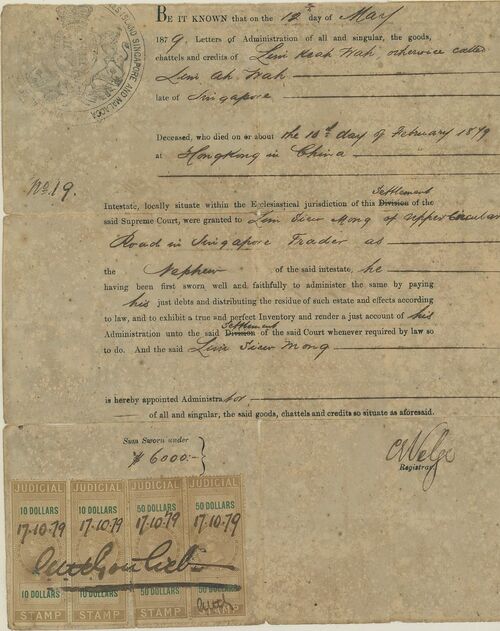 ISLAND SINGAPORE AND MALACCA
BE IT KNOWN that on the 12th day of May
1879, Letters of Administration of all and singular, the goods,
chattels and credits of Lim Keah Wah otherwise called
Lim Ah Wah
late of Singapore
Deceased, who died on or about the 10th day of February 1879
at Hongkong in China
No. 19.
Settlement
Intestate, locally situate within the Ecclesiastical jurisdiction of this Division of the
said Supreme Court, were granted to Lim Siew Mong of Upper Circular
Road in Singapore Trader as
the Nephew of the said intestate, he
having been first sworn well and faithfully to administer the same by paying
his just debts and distributing the residue of such estate and effects according
to law, and to exhibit a true and perfect Inventory and render a just account of his
Settlement
Administration unto the said Division of the said Court whenever required by law so
to do. And the said Lim Siew Mong
is hereby appointed Administrator
of all and singular, the said goods, chattels and credits so situate as aforesaid.
Sum Sworn under
$6000:-
Registrar.
JUDICIAL JUDICIAL JUDICIAL JUDICIAL
10 DOLLARS 10 DOLLARS 50 DOLLARS 50 DOLLARS
17-10-79 17-10-79 17-10-79 17-10-79
10 DOLLARS 10 DOLLARS 50 DOLLARS 50 DOLLARS
STAMP STAMP STAMP STAMP